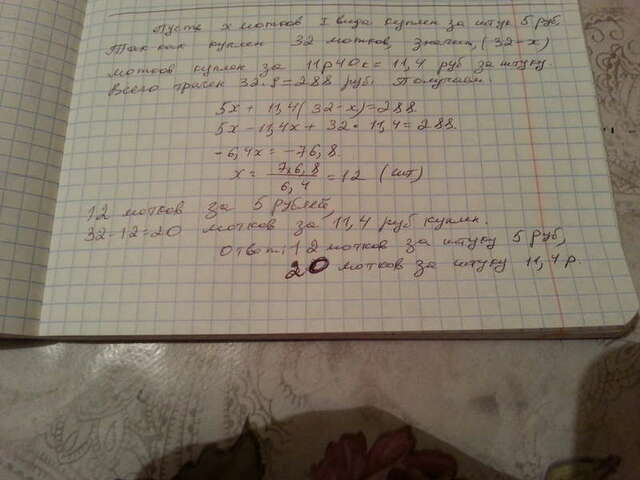 Пусть х мотков I вида куплен за штук 5 руб,
Так как куплен 32 мотков, значит, (32-х)
мотков куплен за 11р40к = 11,4 руб за штуку.
Всего трачен 32·9=288 руб. Получаем:
5х + 11,4(32-х)=288.
5х-11,4х + 32·11,4=288.
-6,4х = -76,8.
х = 76,8/6,4 = 12 (шт)
12 мотков за 5 рублей,
32-12=20 мотков за 11,4 руб куплен.
Ответ: 12 мотков за штуку 5 руб,
20 мотков за штуку 11,4 р.